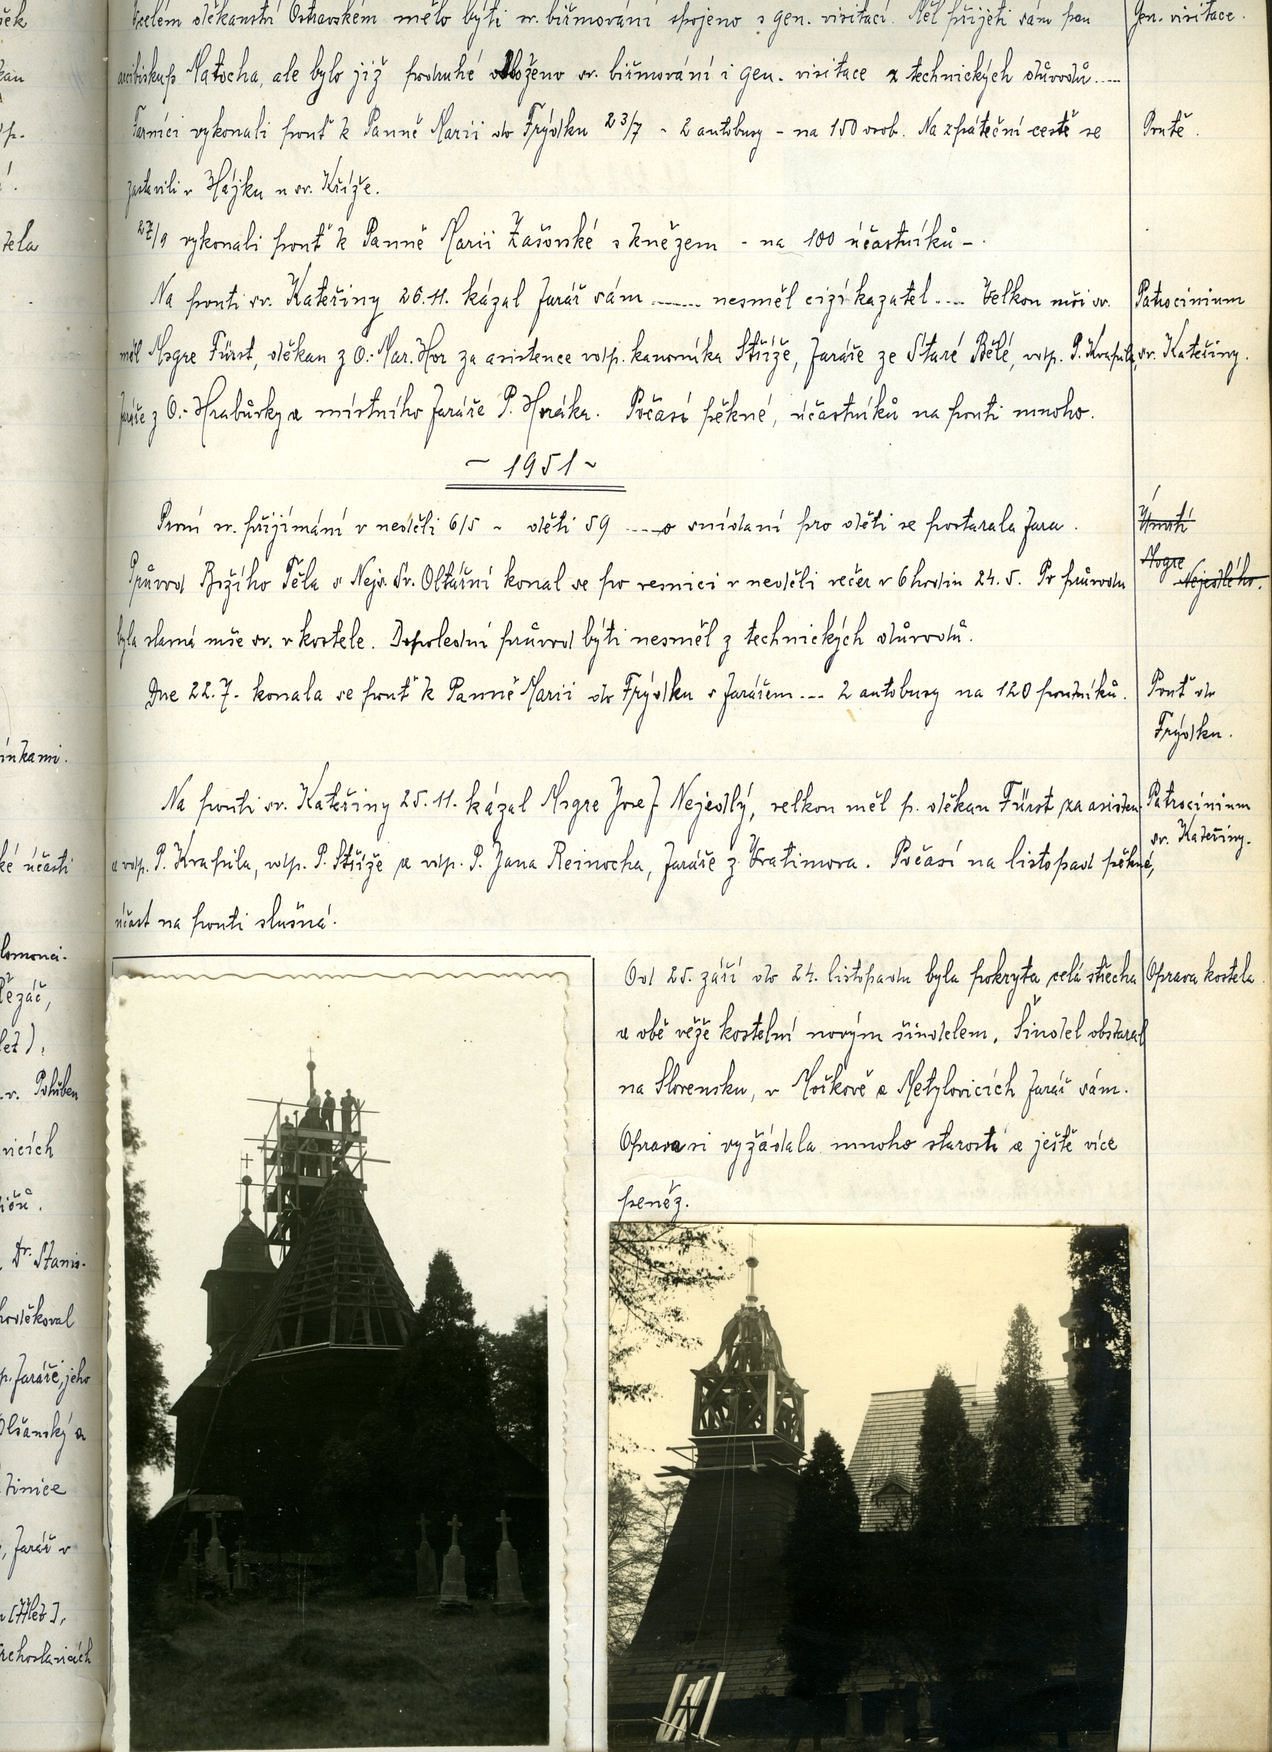 šek
kan
tela
ínkami.
ké účasti
lomouci.
Řezáč,
Potůben
nicích
Dr. Stanis-
poděkoval
p. faráře, jeho
Olšanský a
tinice
, farář v
V celém děkanství Ostravském mělo býti sv. biřmování spojeno s gen. visitací. Měl přijeti sám pan
arcibiskup Matocha, ale bylo již podruhé odloženo sv. biřmování i gen. visitace z technických důvodů....
Farníci vykonali pouť k Panně Marii do Frýdku 23/7 - 2 autobusy - na 150 osob. Na zpáteční cestě se
zastavili v Hájku u sv. Kříže.
27/9 vykonali pouť k Panně Marii Zašovské s knězem - na 100 účastníků -.
Na pouti sv. Kateřiny 26.11. kázal farář sám ....... nesměl cizí kazatel .... Velkou mši sv.
měl Msgre Fürst, děkan z O.-Mar. Hor za asistence vdp. kanovníka Stříže, faráře ze Staré Bělé, vdp. P. Krapila,
faráře z O.-Hrabůvky a místního faráře P. Horáka. Počasí pěkné, účastníků na pouti mnoho.
~ 1951 ~
První sv. přijímání v neděli 6/5 - dětí 59 ..... o snídani pro děti se postarala fara.
Průvod Božího Těla s Nejsv. Sv. Oltářní konal se po vesnici v neděli večer v 6 hodin 24.5. Po průvodu
byla slavná mše sv. v kostele. Dopolední průvod býti nesměl z technických důvodů.
Dne 22.7. konala se pouť k Panně Marii do Frýdku s farářem .... 2 autobusy na 120 poutníků.
Na pouti sv. Kateřiny 25.11. kázal Msgre Josef Nejedlý, velkou měl p. děkan Fürst za asisten-
e vdp. P. Krapila, vdp. P. Stříže a vdp. P. Jana Reinocha, faráře z Vratimova. Počasí na listopad pěkné,
účast na pouti slušná.
Od 25. září do 24. listopadu byla pokryta celá střecha
a obě věže kostelní novým šindelem. Šindel obstaral
na Slovensku, v Hošově a Metylovicích farář sám.
Oprava si vyžádala mnoho starostí a ještě více
peněz.
Gen. visitace.
Poutě.
Patrocinium
sv. Kateřiny.
Úmrtí
Msgre
Nejedlého.
Pouť do
Frýdku.
Patrocinium
sv. Kateřiny.
Oprava kostela.